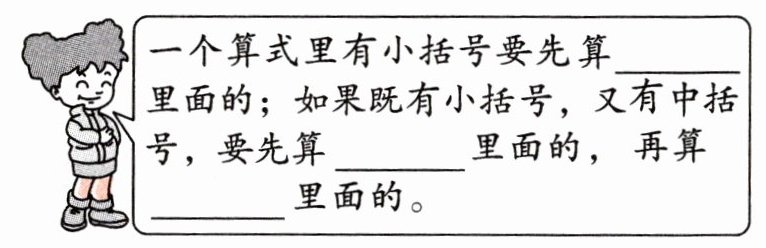 一个算式里有小括号要先算________
里面的；如果既有小括号，又有中括
号，要先算________里面的，再算
________里面的。